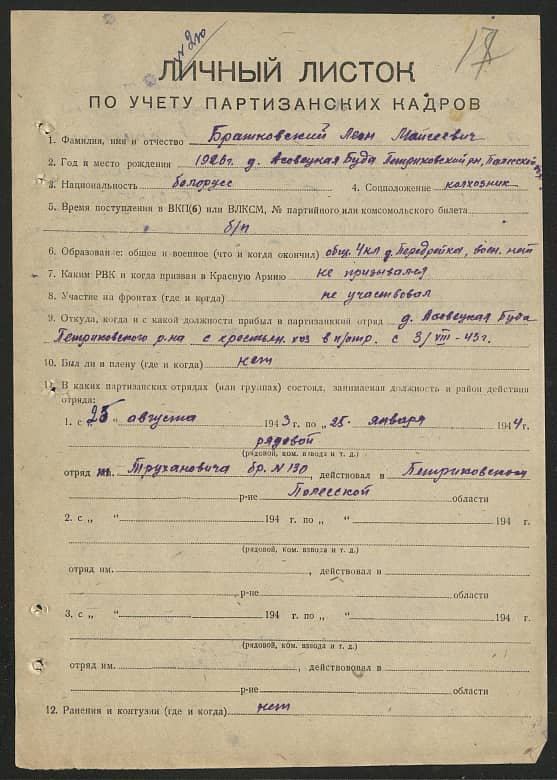 № 210
17
ЛИЧНЫЙ ЛИСТОК
ПО УЧЕТУ ПАРТИЗАНСКИХ КАДРОВ
1. Фамилия, имя и отчество Брашковский Леон Мойсеевич
2. Год и место рождения 1926 г. д. Осовецкая Буда Петриковский рн, Полесской
3. Национальность белорусс 4. Соцположение колхозник
5. Время поступления в ВКП(б) или ВЛКСМ, № партийного или комсомольского билета
б/п
6. Образование: общее и военное (что и когда окончил) общ. 4 кл д. воен. нет
7. Каким РВК и когда призван в Красную Армию не призывался
8. Участие на фронтах (где и когда) не участвовал
9. Откуда, когда и с какой должности прибыл в партизанский отряд д. Осовецкая Буда
Петриковского р-на с крестьян. хоз в п/отр. с 3/VIII-43 г.
10. Был ли в плену (где и когда) нет
11. В каких партизанских отрядах (или группах) состоял, занимаемая должность и район действия
отряда:
1. с „ 25 “ августа 1943 г. по „ 25 “ января 1944 г.
рядовой
(рядовой, ком. взвода и т. д.)
отряд им. Трухановича бр. N 130, действовал в Петриковском
р-не Полесской области
2. с „ “ 194 г. по „ “ 194 г.
(рядовой, ком. взвода и т. д.)
отряд им. , действовал в
р-не области
3. с „ “ 194 г. по „ “ 194 г.
(рядовой, ком. взвода и т. д.)
отряд им. , действовал в
р-не области
12. Ранения и контузии (где и когда) нет